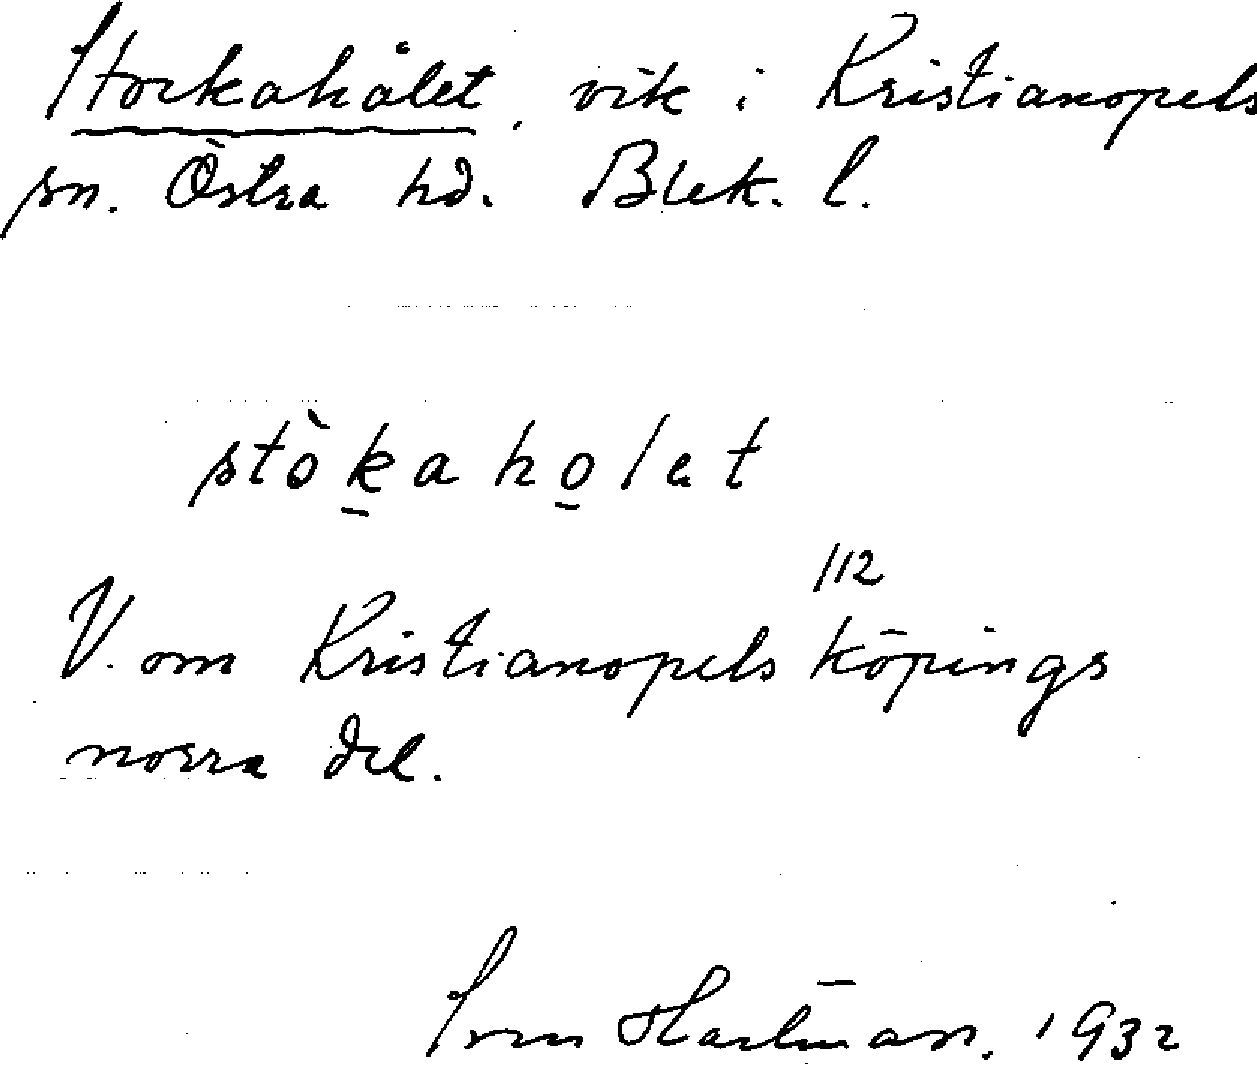 Storkahålet, vik i Kristianopels
sn. Östra hd. Blek. l.
stòkaholet
112
V. om Kristianopels köpings
norra del.
Sven Hartman. 1932